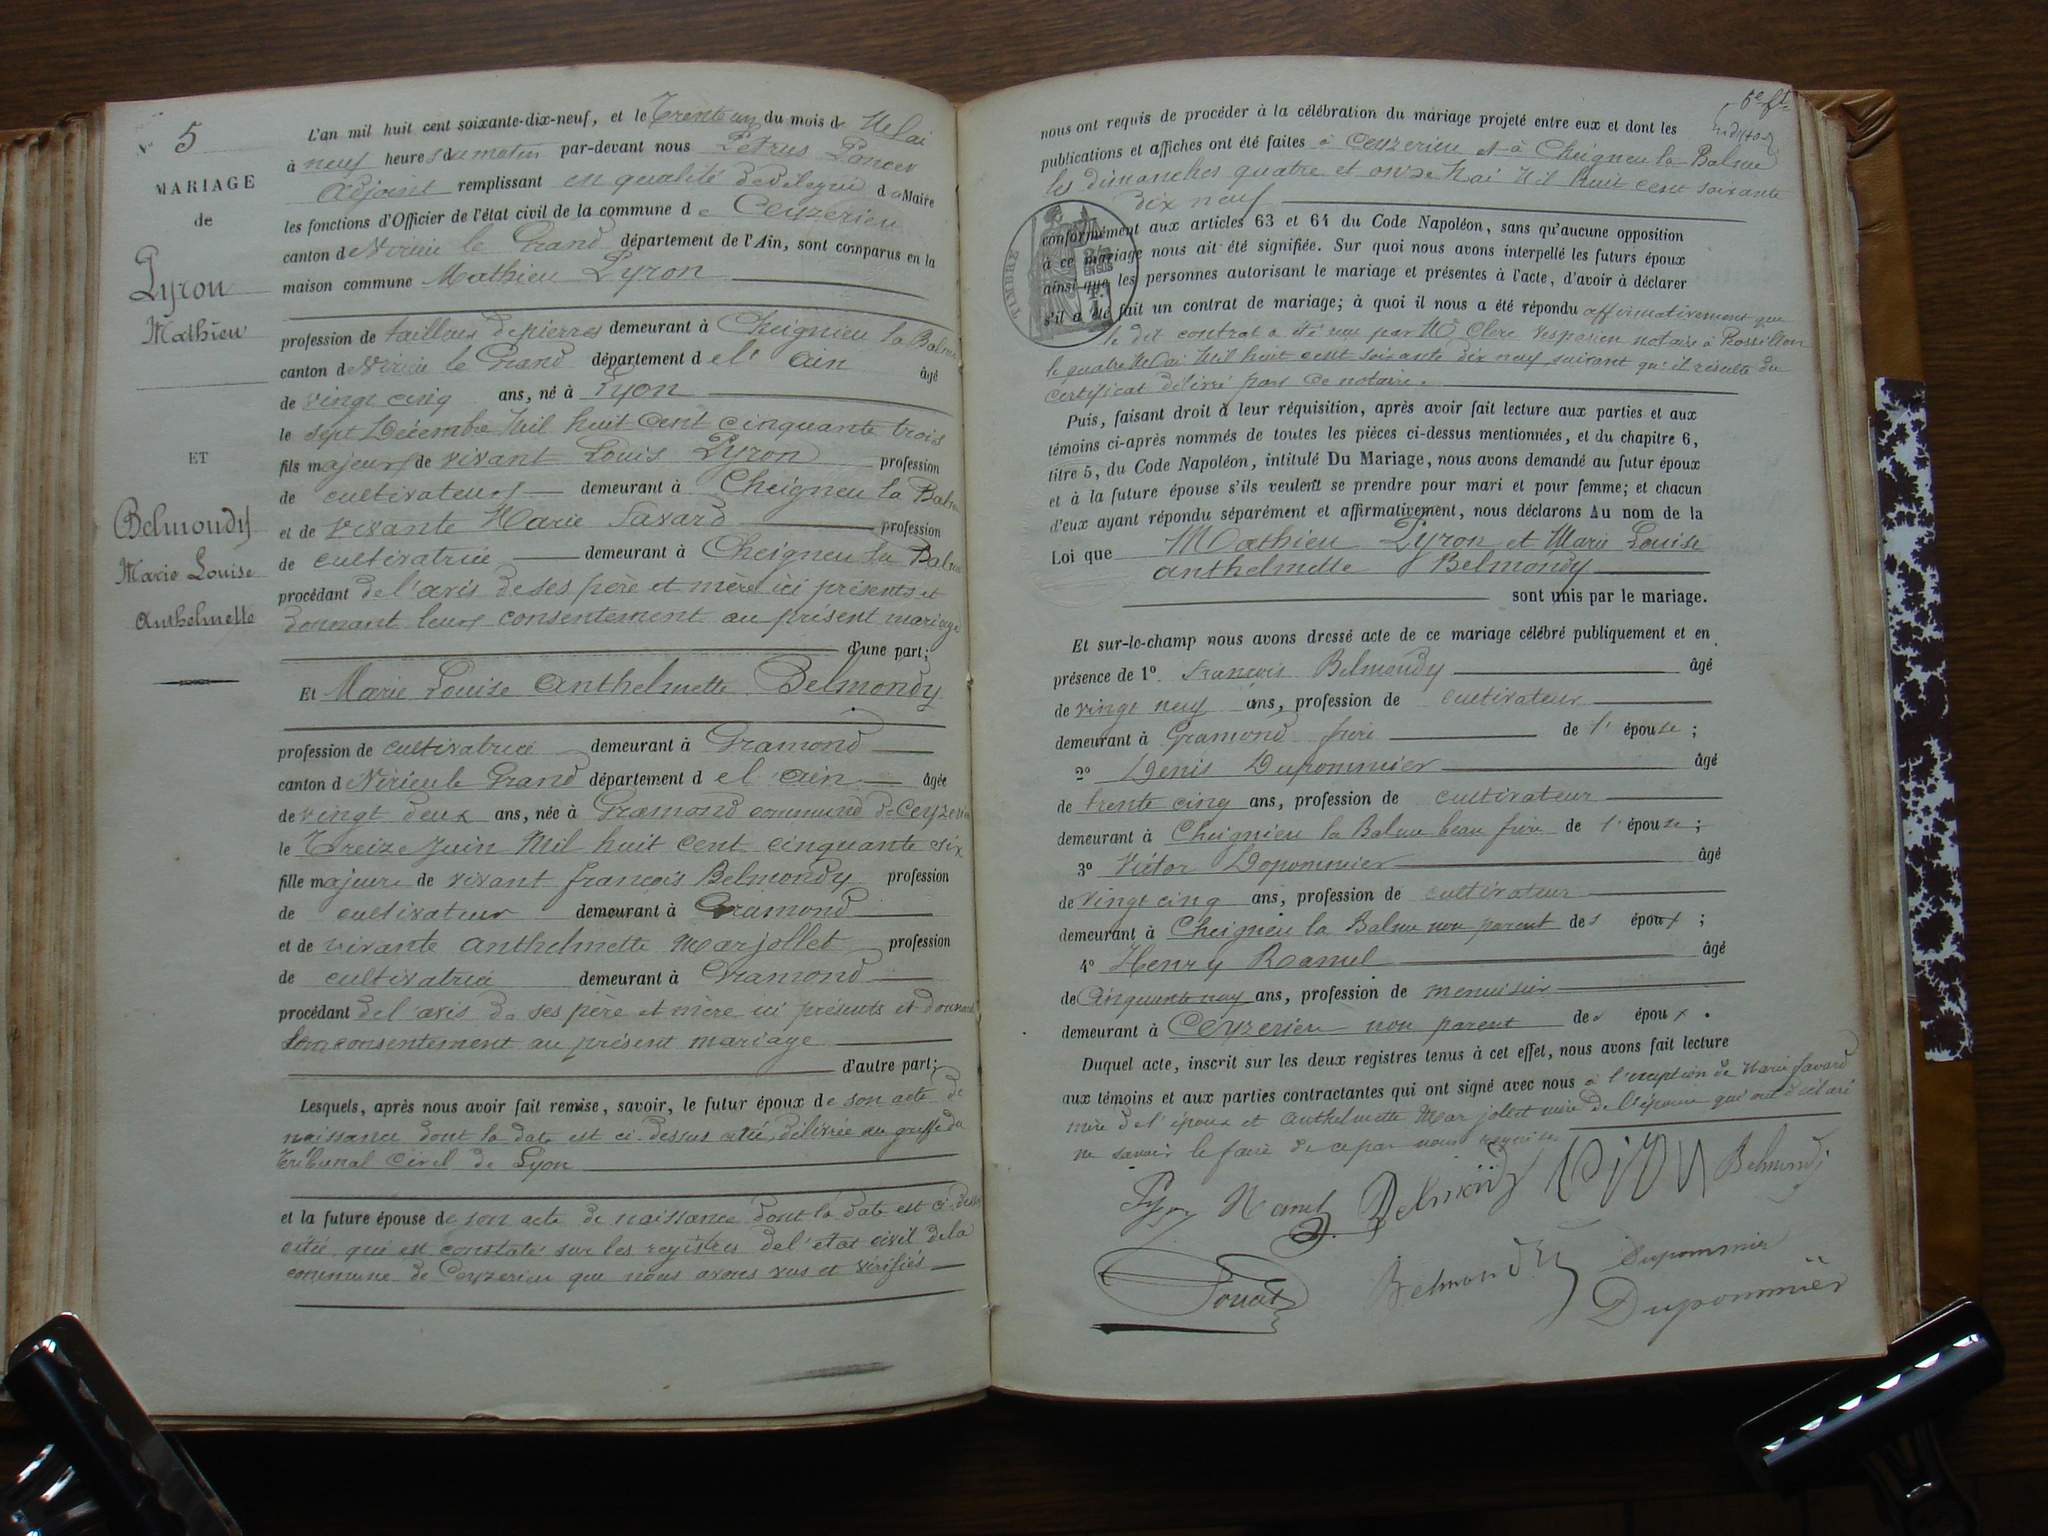 N° 5
MARIAGE
de
Pyron
Mathieu
ET
Belmondy
Marie Louise
Anthelmette
L'an mil huit cent soixante-dix-neuf, et le Trente un du mois de Mai
à neuf heures du matin par-devant nous Petrus
Adjoint remplissant en qualité de délégué du Maire
les fonctions d'Officier de l'état civil de la commune de Ceyzerieu
canton de Virieu le Grand département de l'Ain, sont comparus en la
maison commune Mathieu Pyron
profession de tailleur de pierres demeurant à Cheignieu la Balme
canton de Virieu le Grand département de l' ain âgé
de vingt cinq ans, né à Lyon
le sept Décembre Mil huit cent cinquante trois
fils majeur de vivant Louis Pyron profession
de cultivateur demeurant à Cheigneu la Balme
et de vivante Marie Savard profession
de cultivatrice demeurant à Cheigneu la Balme
procédant de l'avis de ses père et mère ici présents et
donnant leur consentement au présent mariage
d'une part;
Et Marie Louise Anthelmette Belmondy
profession de cultivatrice demeurant à Gramond
canton de Virieu le Grand département de l'ain âgée
de vingt deux ans, née à Gramond commune de Ceyzerieu
le Treize Juin Mil huit cent cinquante six
fille majeure de vivant françois Belmondy profession
de cultivateur demeurant à Gramond
et de vivante anthelmette Marjollet profession
de cultivatrice demeurant à Gramond
procédant de l'avis de ses père et mère ici présents et donnant
consentement au présent mariage
d'autre part;
Lesquels, après nous avoir fait remise, savoir, le futur époux de son acte de
naissance dont la date est ci-dessus citée, délivrée au greffe du
Tribunal Civil de Lyon
et la future épouse de son acte de naissance dont la date est ci-dessus
citée qui est constaté sur les registres de l'état civil de la
commune de Ceyzerieu que nous avons vus et vérifiés
nous ont requis de procéder à la célébration du mariage projeté entre eux et dont les
publications et affiches ont été faites à Ceyzerieu et à Cheigneu la Balme
les dimanches quatre et onze Mai Mil huit cent soixante
dix neuf
TIMBRE
conformément aux articles 63 et 64 du Code Napoléon, sans qu'aucune opposition
à ce mariage nous ait été signifiée. Sur quoi nous avons interpellé les futurs époux
ainsi que les personnes autorisant le mariage et présentes à l'acte, d'avoir à déclarer
s'il a été fait un contrat de mariage; à quoi il nous a été répondu affirmativement que
le dit contrat a été reçu par Me Clerc Vespasien notaire à Rossillon
le quatre Mai Mil huit cent soixante dix neuf, suivant qu'il résulte du
certificat délivré par ce notaire.
Puis, faisant droit à leur réquisition, après avoir fait lecture aux parties et aux
témoins ci-après nommés de toutes les pièces ci-dessus mentionnées, et du chapitre 6,
titre 5, du Code Napoléon, intitulé Du Mariage, nous avons demandé au futur époux
et à la future épouse s'ils veulent se prendre pour mari et pour femme; et chacun
d'eux ayant répondu séparément et affirmativement, nous déclarons Au nom de la
Loi que Mathieu Pyron et Marie Louise
anthelmette Belmondy
sont unis par le mariage.
Et sur-le-champ nous avons dressé acte de ce mariage célébré publiquement et en
présence de 1° François Belmondy âgé
de vingt neuf ans, profession de cultivateur
demeurant à Gramond frère de l' épouse;
2° Denis Dupommier âgé
de trente cinq ans, profession de cultivateur
demeurant à Cheignieu la Balme beau frère de l'épouse;
3° Victor Dopommier âgé
de vingt cinq ans, profession de cultivateur
demeurant à Cheignieu la Balme non parent des époux;
4° Henry Ramel âgé
de Cinquante neuf ans, profession de menuisier
demeurant à Ceyzerieu non parent des époux.
Duquel acte, inscrit sur les deux registres tenus à cet effet, nous avons fait lecture
aux témoins et aux parties contractantes qui ont signé avec nous à l'exception de Marie Savard
mère de l'époux et Anthelmette Marjollet mère de l'épouse qui ont déclaré
ne savoir le faire de ce par nous requises
Pyron Ramel Belmondy Pyron Belmondy
Belmondy Dupommier
Dupommier